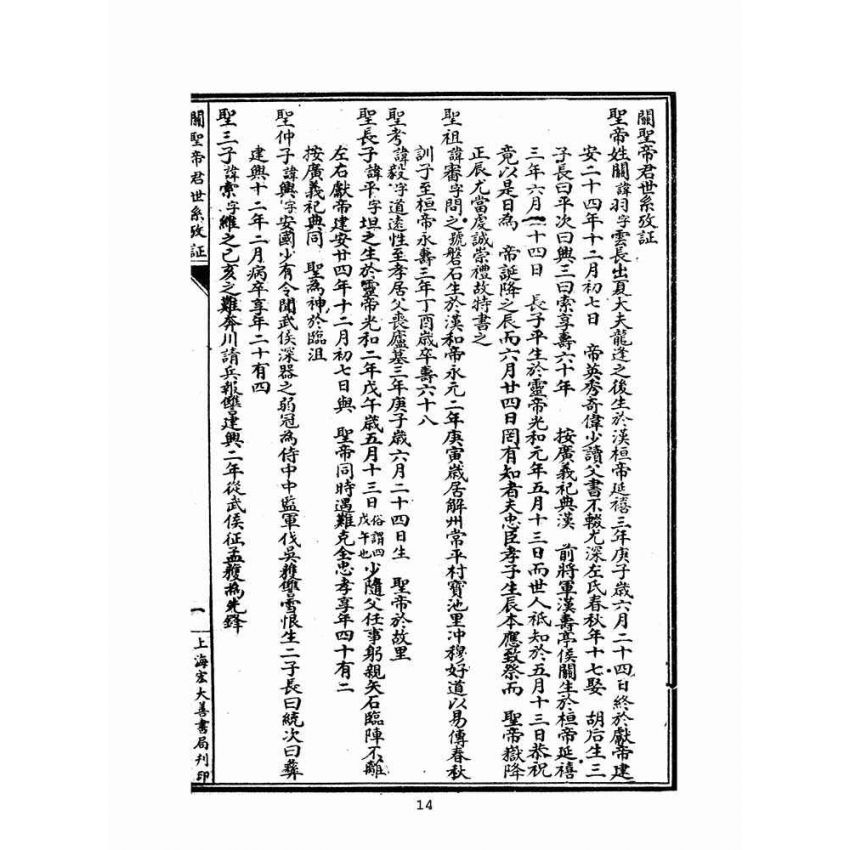 關聖帝君世系攷証
聖帝姓關諱羽字雲長出夏大夫龍逢之後生於漢桓帝延禧三年庚子歲六月二十四日終於獻帝建
安二十四年十二月初七日　帝英秀奇偉少讀父書不輟尤深左氏春秋年十七娶　胡后生三
子長曰平次曰興三曰索享壽六十年　按廣義祀典漢　前將軍漢壽亭侯關生於桓帝延禧
三年六月二十四日　長子平生於靈帝光和元年五月十三日而世人祇知於五月十三日恭祝
竟以是日為　帝誕降之辰而六月廿四日罔有知者夫忠臣孝子生辰本應致祭而　聖帝嶽降
正辰尤當虔誠崇禮故特書之
聖祖諱審字問之號磐石生於漢和帝永元二年庚寅歲居解州常平村寶池里冲穆好道以易傳春秋
訓子至桓帝永壽三年丁酉歲卒壽六十八
聖考諱毅字道遠性至孝居父喪廬墓三年庚子歲六月二十四日生　聖帝於故里
聖長子諱平字坦之生於靈帝光和二年戊午歲五月十三日俗謂四戊午也少隨父任事躬親矢石臨陣不離
左右獻帝建安廿四年十二月初七日與　聖帝同時遇難克全忠孝享年四十有二
按廣義祀典同　聖為神於臨沮
聖仲子諱興字安國少有令聞武侯深器之弱冠為侍中中監軍伐吳雙讐雪恨生二子長曰統次曰彝
建興十二年二月病卒享年二十有四
聖三子諱索字維之己亥之難奔川請兵報讐建興二年從武侯征孟獲為先鋒
關聖帝君世系攷証
一
上海宏大善書局刊印
14